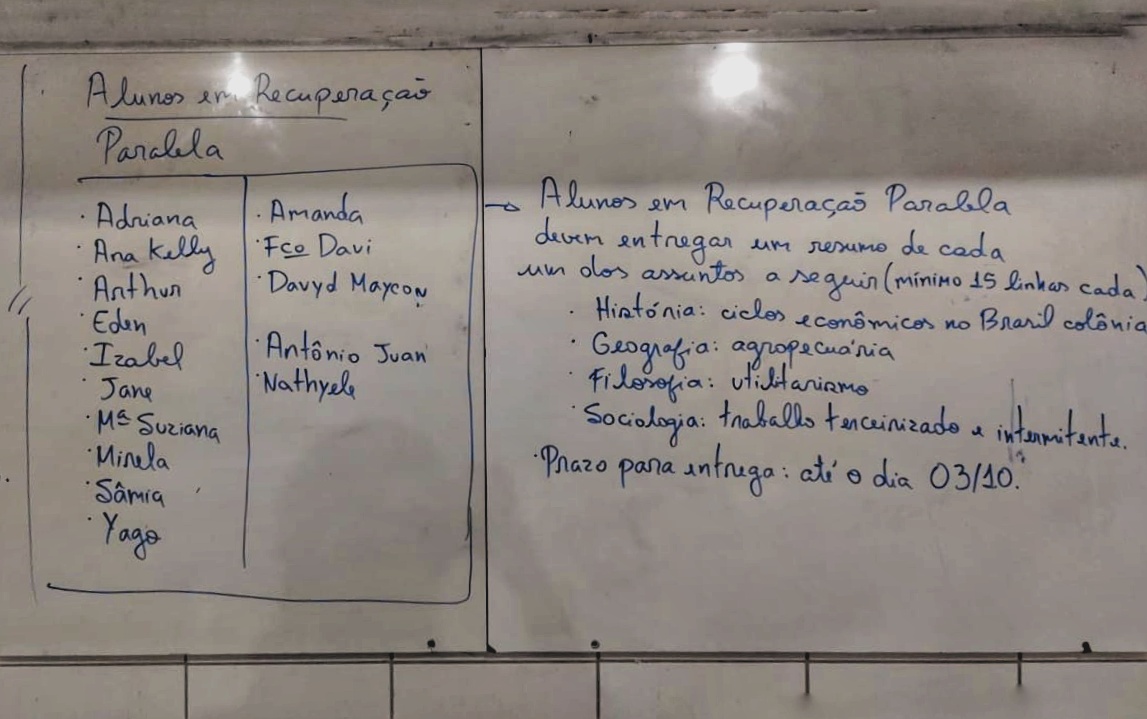 Alunos em Recuperação
Paralela
· Adriana
· Ana Kelly
· Arthur
· Eden
· Izabel
· Jane
· Mª Suziana
· Mirela
· Sâmia
· Yago
· Amanda
· Fco Davi
· Davyd Maycon
· Antônio Juan
· Nathyele
→ Alunos em Recuperação Paralela
devem entregar um resumo de cada
um dos assuntos a seguir (mínimo 15 linhas cada)
· História: ciclos econômicos no Brasil colônia
· Geografia: agropecuária
· Filosofia: utilitarismo
· Sociologia: trabalho terceirizado e intermitente.
· Prazo para entrega: até o dia 03/10.